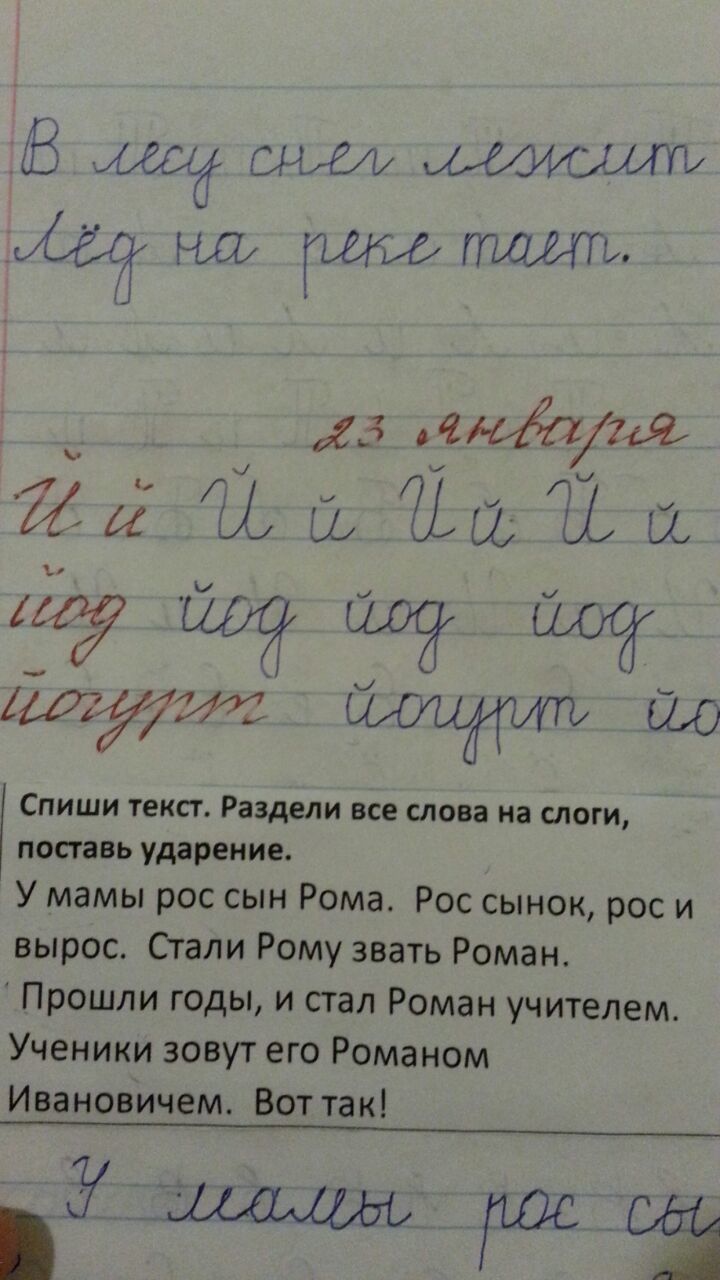 В лесу снег лежит
Лёд на реке тает.
23 января
Й й Й й Й й Й й
йод йод йод йод
йогурт йогурт йо
Спиши текст. Раздели все слова на слоги,
поставь ударение.
У мамы рос сын Рома. Рос сынок, рос и
вырос. Стали Рому звать Роман.
Прошли годы, и стал Роман учителем.
Ученики зовут его Романом
Ивановичем. Вот так!
У мамы рос сы